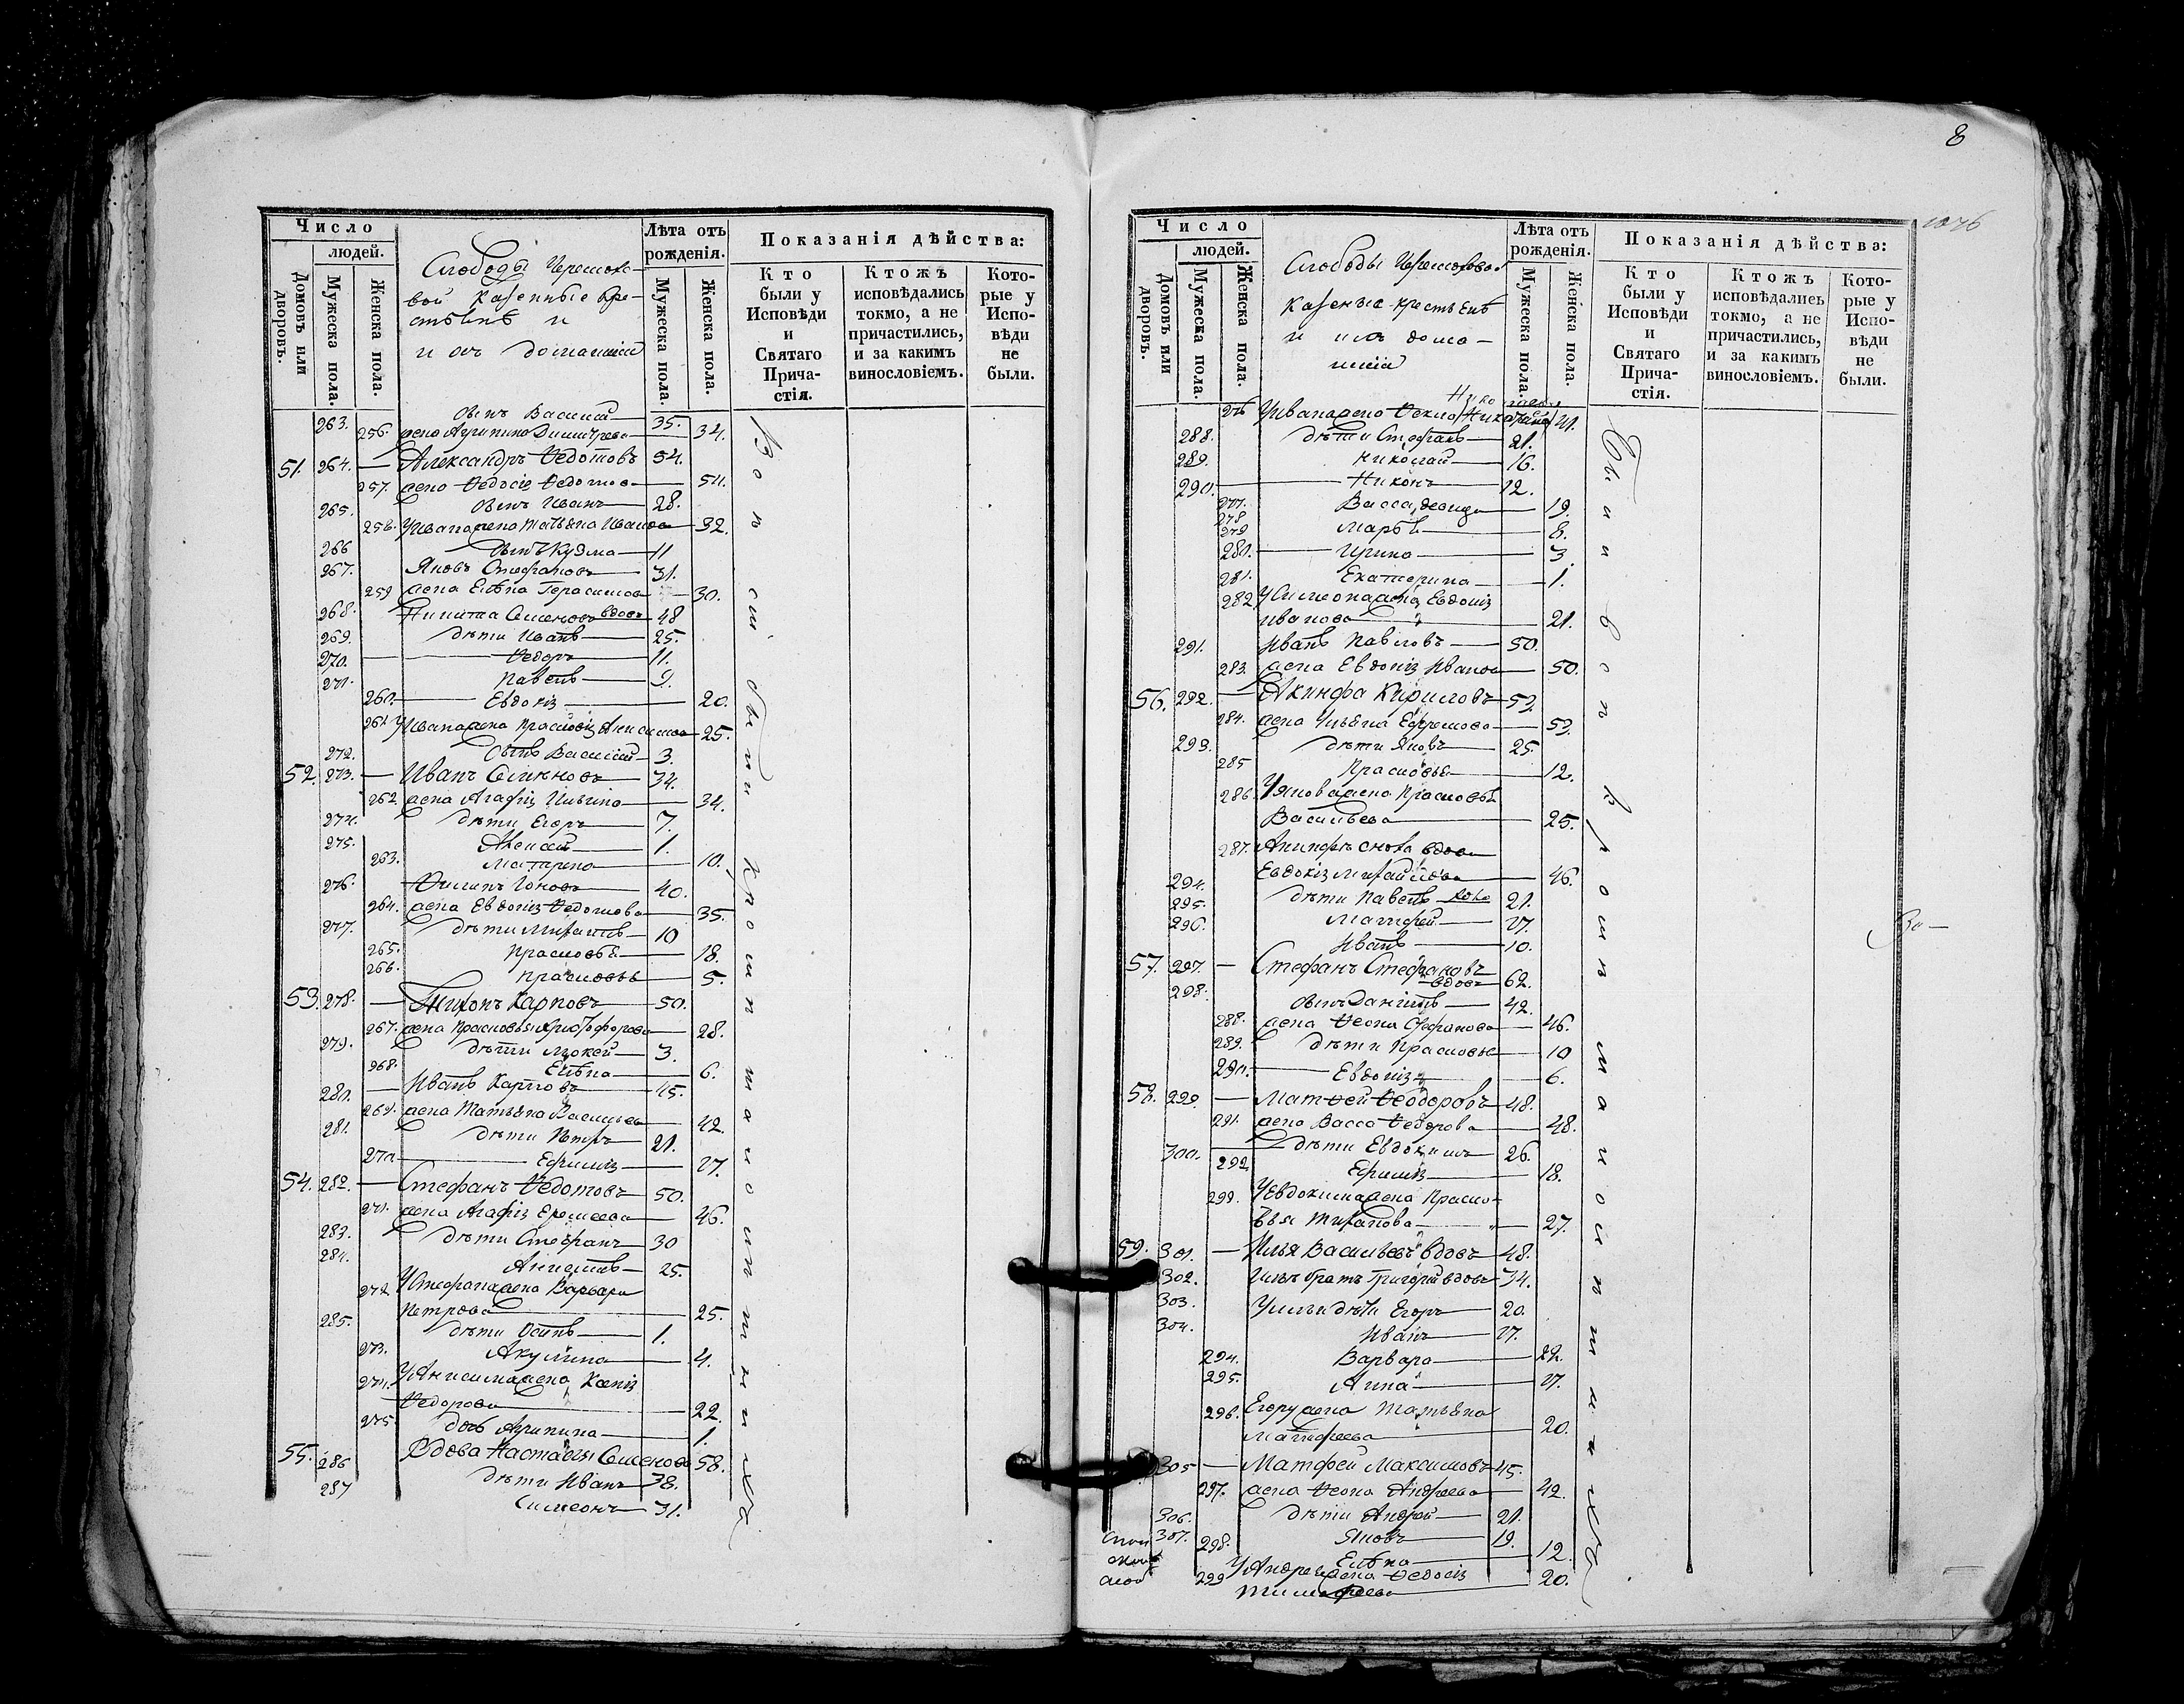 8
Число
людей.
Домовъ или дворовъ.
Мужеска пола.
Женска пола.
Слободы Черемхо-
вой казенные кре-
стьянѣ и
и ихъ домашнія
Лѣта отъ рожденія.
Мужеска пола.
Женска пола.
Показанія дѣйства:
Кто были у Исповѣди и Святаго Прича-стія.
Ктожъ исповѣдались токмо, а не причастились, и за какимъ винословіемъ.
Кото-рые у Испо-вѣди не были.
263. сынъ Василій 35.
256. жена Агрипина Димитрева 34.
51. 264. Александръ Ѳедотовъ 54.
257. жена Ѳедосіе 54.
265. сынъ Иванъ 28.
258. У Ивана жена Татьяна Иванова 32.
266 сынъ Кузма 11
267. Яковъ Стефановъ 31.
259 жена Елѣна Герасимова 30.
268. Никита Семеновъ вдовъ 48
269. дѣти Иванъ 25.
270. Ѳедоръ 11.
271. Павелъ 9.
260. Евдокія 20.
261. У Ивана жена Прасковія Анисимова 25.
272. сынъ Василій 3.
52. 273. Иванъ 34.
262. жена Агафія Ильина 34.
274. дѣти Егоръ 7.
275. Алексей 1.
263. Матрена 10.
276. Филипъ Іоновъ 40.
264. жена Евдокія Ѳедотова 35.
277. дѣти Михаилъ 10
265. Прасковья 18.
266. Прасковья 5.
53. 278. Тихонъ Карповъ 50.
267. жена Прасковья Христофорова 28.
279. дѣти Мокей 3.
268. Елѣна 6.
280. Иванъ Карповъ 45.
269. жена Татьяна Васильева 42.
281. дѣти Петръ 21.
270. Ефимія 17.
54. 282. Стефанъ Ѳедотовъ 50.
271. жена Агафія Еремеева 46.
283. дѣти Стефанъ 30
284. 25.
272 У Стефана жена Варвара
Петрова 25.
285. дѣти Осипъ 1.
273. Акулина 4.
274. У Анисима жена Ксенія
Ѳедорова 22.
275. дочь Агрипина 1.
55. Вдова Настасья Семенова 58.
286 дѣти Иванъ 38.
287 Симеонъ 31.
Число
людей.
Домовъ или дворовъ.
Мужеска пола.
Женска пола.
Слободы Черемховой
казенные крестьянѣ
и ихъ дома-
шнія
Лѣта отъ рожденія.
Мужеска пола.
Женска пола.
Показанія дѣйства:
Кто были у Исповѣди и Святаго Прича-стія.
Ктожъ исповѣдались токмо, а не причастились, и за какимъ винословіемъ.
Кото-рые у Испо-вѣди не были.
276 У Ивана жена Ѳекла 41.
288. дѣти Стефанъ 21.
289. Николай 16.
290. Никонъ 12.
277. Васса, девица 19.
278
279 Марья 8.
280. Ирина 3.
281. Екатерина 1.
282 У Симеона жена Евдокія
Иванова 21.
291. Иванъ Павловъ 50.
283. жена Евдокія Иванова 50.
56. 292. Акинфа Кириловъ 53.
284. жена Ульяна Ефремова 53.
293. дѣти Яковъ 25.
285 Прасковья 12.
286. У Якова жена Прасковья
Васильева 25.
287. Акинфъ сноха вдова
Евдокія Михайлова 46.
294. дѣти Павелъ 21.
295. Матфей 17.
296. Иванъ 10.
57. 297. Стефанъ Стефановъ
вдовъ 62.
298. сынъ Даниилъ 42.
288. жена Ѳеона Стефанова 46.
289. дѣти Прасковья 10
290. Евдокія 6.
58. 299. Матѳей Ѳеодоровъ 48.
291. жена Васса Ѳедорова 48.
300. дѣти Евдокимъ 26.
292. Ефимія 18.
293. У Евдокима жена Праско-
вья Тихонова 27.
59. 301. Илья Васильевъ вдовъ 48.
302. Ильи братъ Григорій вдовъ 34.
303. У Ильи дѣти Егоръ 20.
304. Иванъ 17.
294. Варвара 22.
295. Анна 17.
296. Егору жена Татьяна
Матфеева 20.
305 Матфей Максимовъ 45.
297. жена Ѳеона Андреева 42.
306. дѣти Андрей 21.
307. Яковъ 19.
298. Елѣна 12.
299 У Андрея жена Ѳедосія
Тимофеева 20.